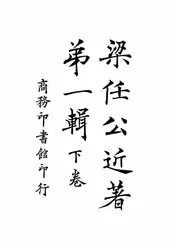 梁任公近著
弟一輯下卷
商務印書館印行